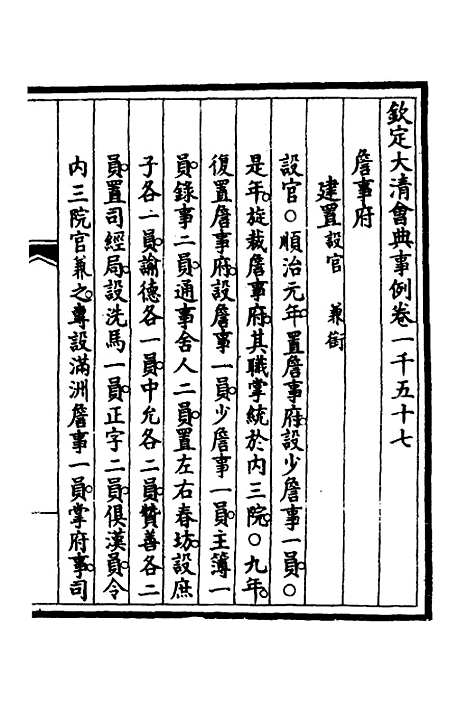 欽定大清會典事例卷一千五十七
詹事府
建置 設官 兼銜
設官○順治元年。置詹事府。設少詹事一員。○
是年。旋裁詹事府。其職掌統於內三院。○九年。
復置詹事府。設詹事一員。少詹事一員。主簿一
員。錄事二員。通事舍人二員。置左右春坊。設庶
子各一員。諭德各一員。中允各二員。贊善各二
員。置司經局。設洗馬一員。正字二員。俱漢員。令
內三院官兼之。尊設滿洲詹事一員。掌府事。司